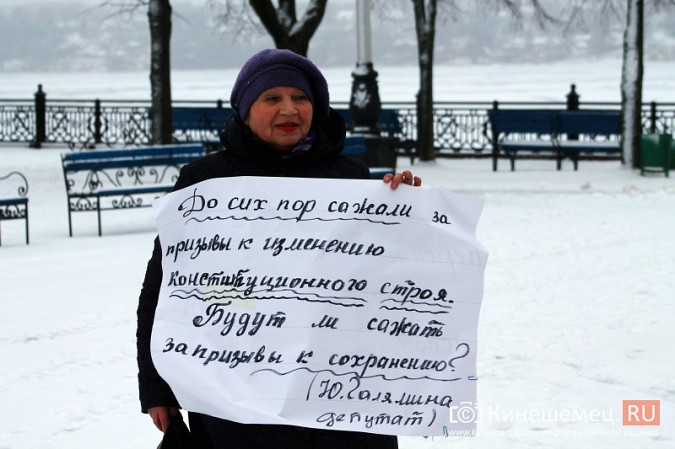 До сих пор сажали за
призывы к изменению
конституционного строя.
Будут ли сажать
за призывы к сохранению?
(Ю. Галямина
депутат)
(c) Кинешемец.RU